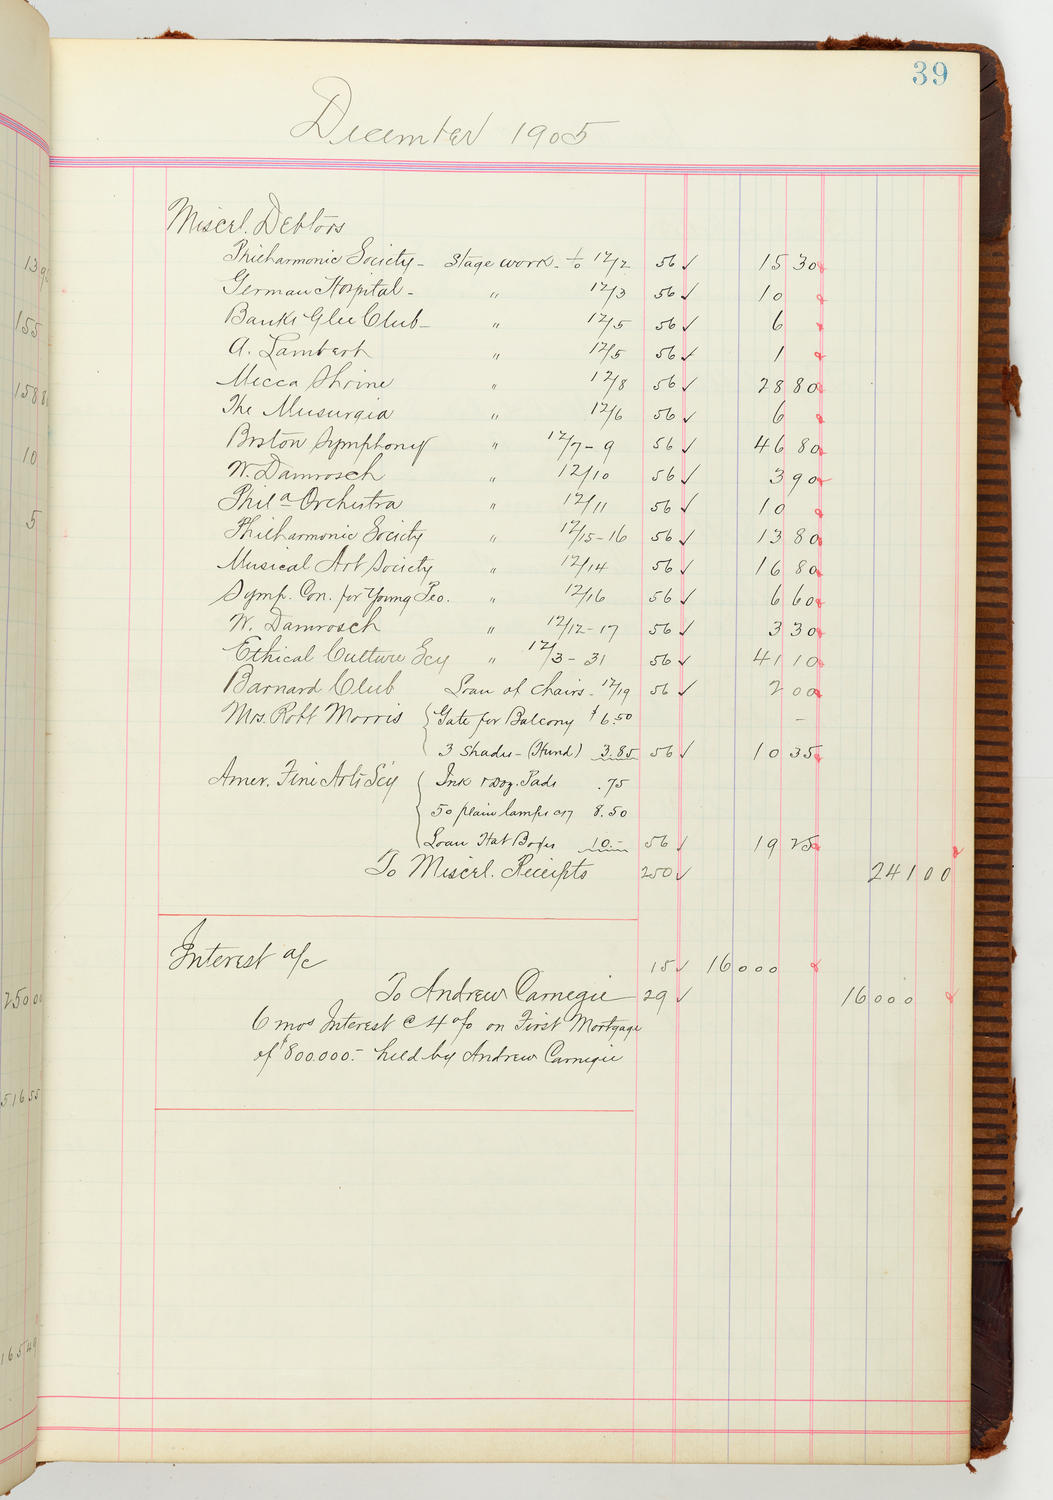 39
December 1905
Miscel. Debtors
Philharmonic Society - Stage work - 12/2 56 ✓ 15 30
German Hospital - " 12/3 56 ✓ 10
Banks Glee Club - " 12/5 56 ✓ 6
A. Lambert " 12/5 56 ✓ 1
Mecca Shrine " 12/8 56 ✓ 28 80
The Musurgia " 12/6 56 ✓ 6
Boston Symphony " 12/7-9 56 ✓ 46 80
W. Damrosch " 12/10 56 ✓ 3 90
Phila Orchestra " 12/11 56 ✓ 10
Philharmonic Society " 12/15-16 56 ✓ 13 80
Musical Art Society " 12/14 56 ✓ 16 80
Symp. Con. for Young Peo. " 12/16 56 ✓ 6 60
W. Damrosch " 12/12-17 56 ✓ 3 30
Ethical Culture Scy " 12/3-31 56 ✓ 41 10
Barnard Club Loan of chairs - 12/19 56 ✓ 2 00
Mrs. Robt Morris { Gate for Balcony $6.50 -
3 Shades - (Hund) 3.85 56 ✓ 10 35
Amer. Fine Arts Scy { Ink & Doz. Pads .75
50 plain lamps @17 8.50
Loan Hat Boxes 10.- 56 ✓ 19 25
To Miscel. Receipts 250 ✓ 241 00
Interest a/c 15 ✓ 16000
To Andrew Carnegie 29 ✓ 16000
6 mos Interest @ 4 % on First Mortgage
of $800.000.- held by Andrew Carnegie
155
10
5
25000
51655